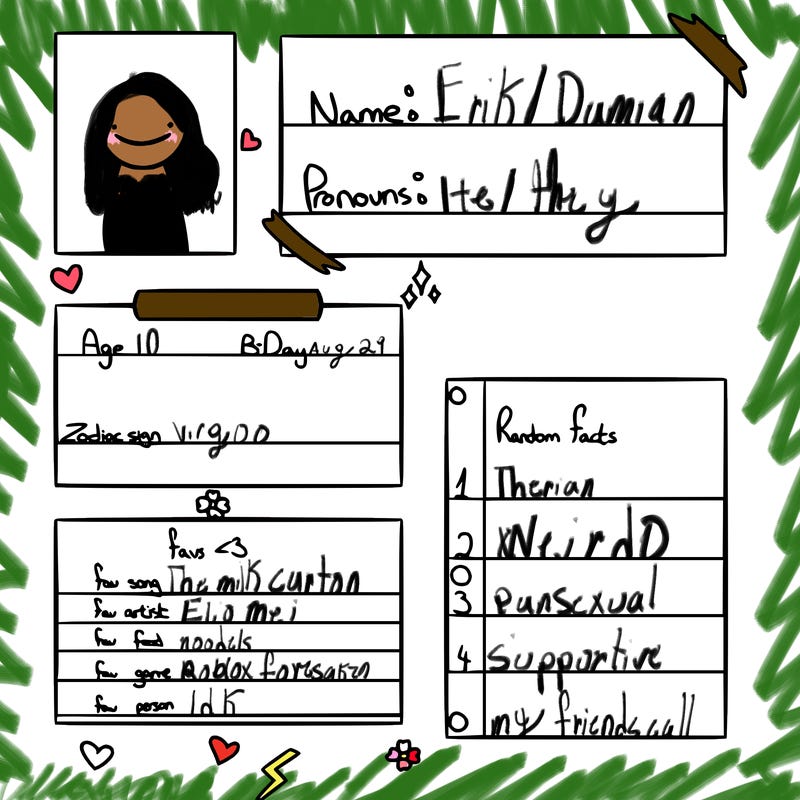 Name: Erik/Dumian
Pronouns: He/they
Age 10 B-Day Aug 29
Zodiac sign Virgoo
favs <3
fav song The milk curton
fav artist Elio mei
fav food noodels
fav game Roblox forsaken
fav person Idk
Random facts
1 Therian
2 xWeirdO
3 punsexual
4 Supportive
my friends call